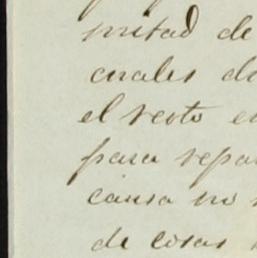 mitad de
cuales d
el resto e
para repa
causa no
de cosas